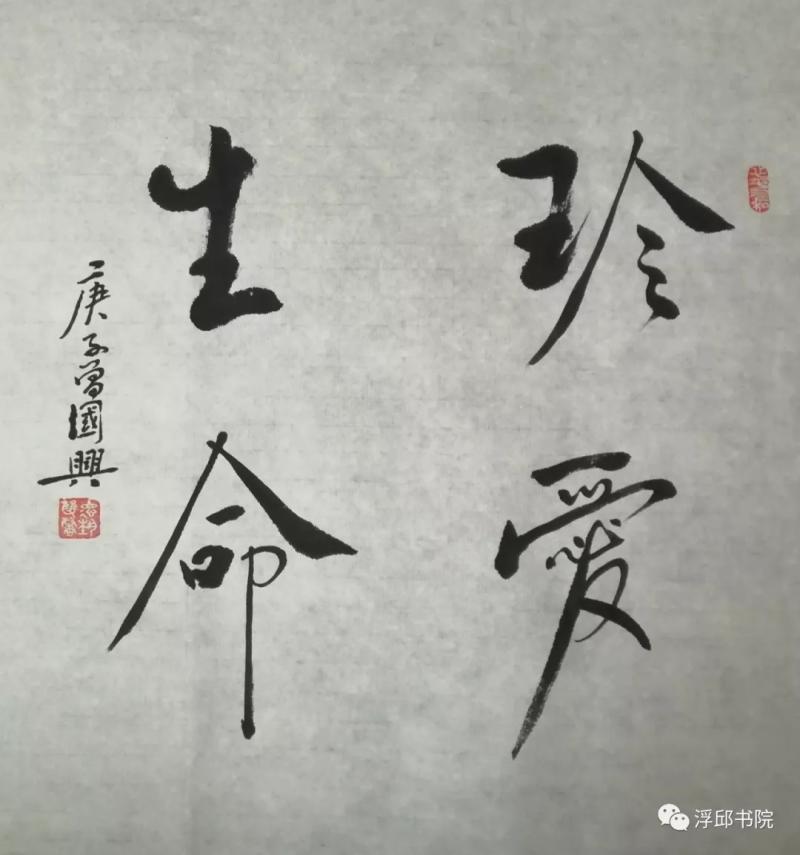 珍愛
生命
庚子曾國興
浮邱书院